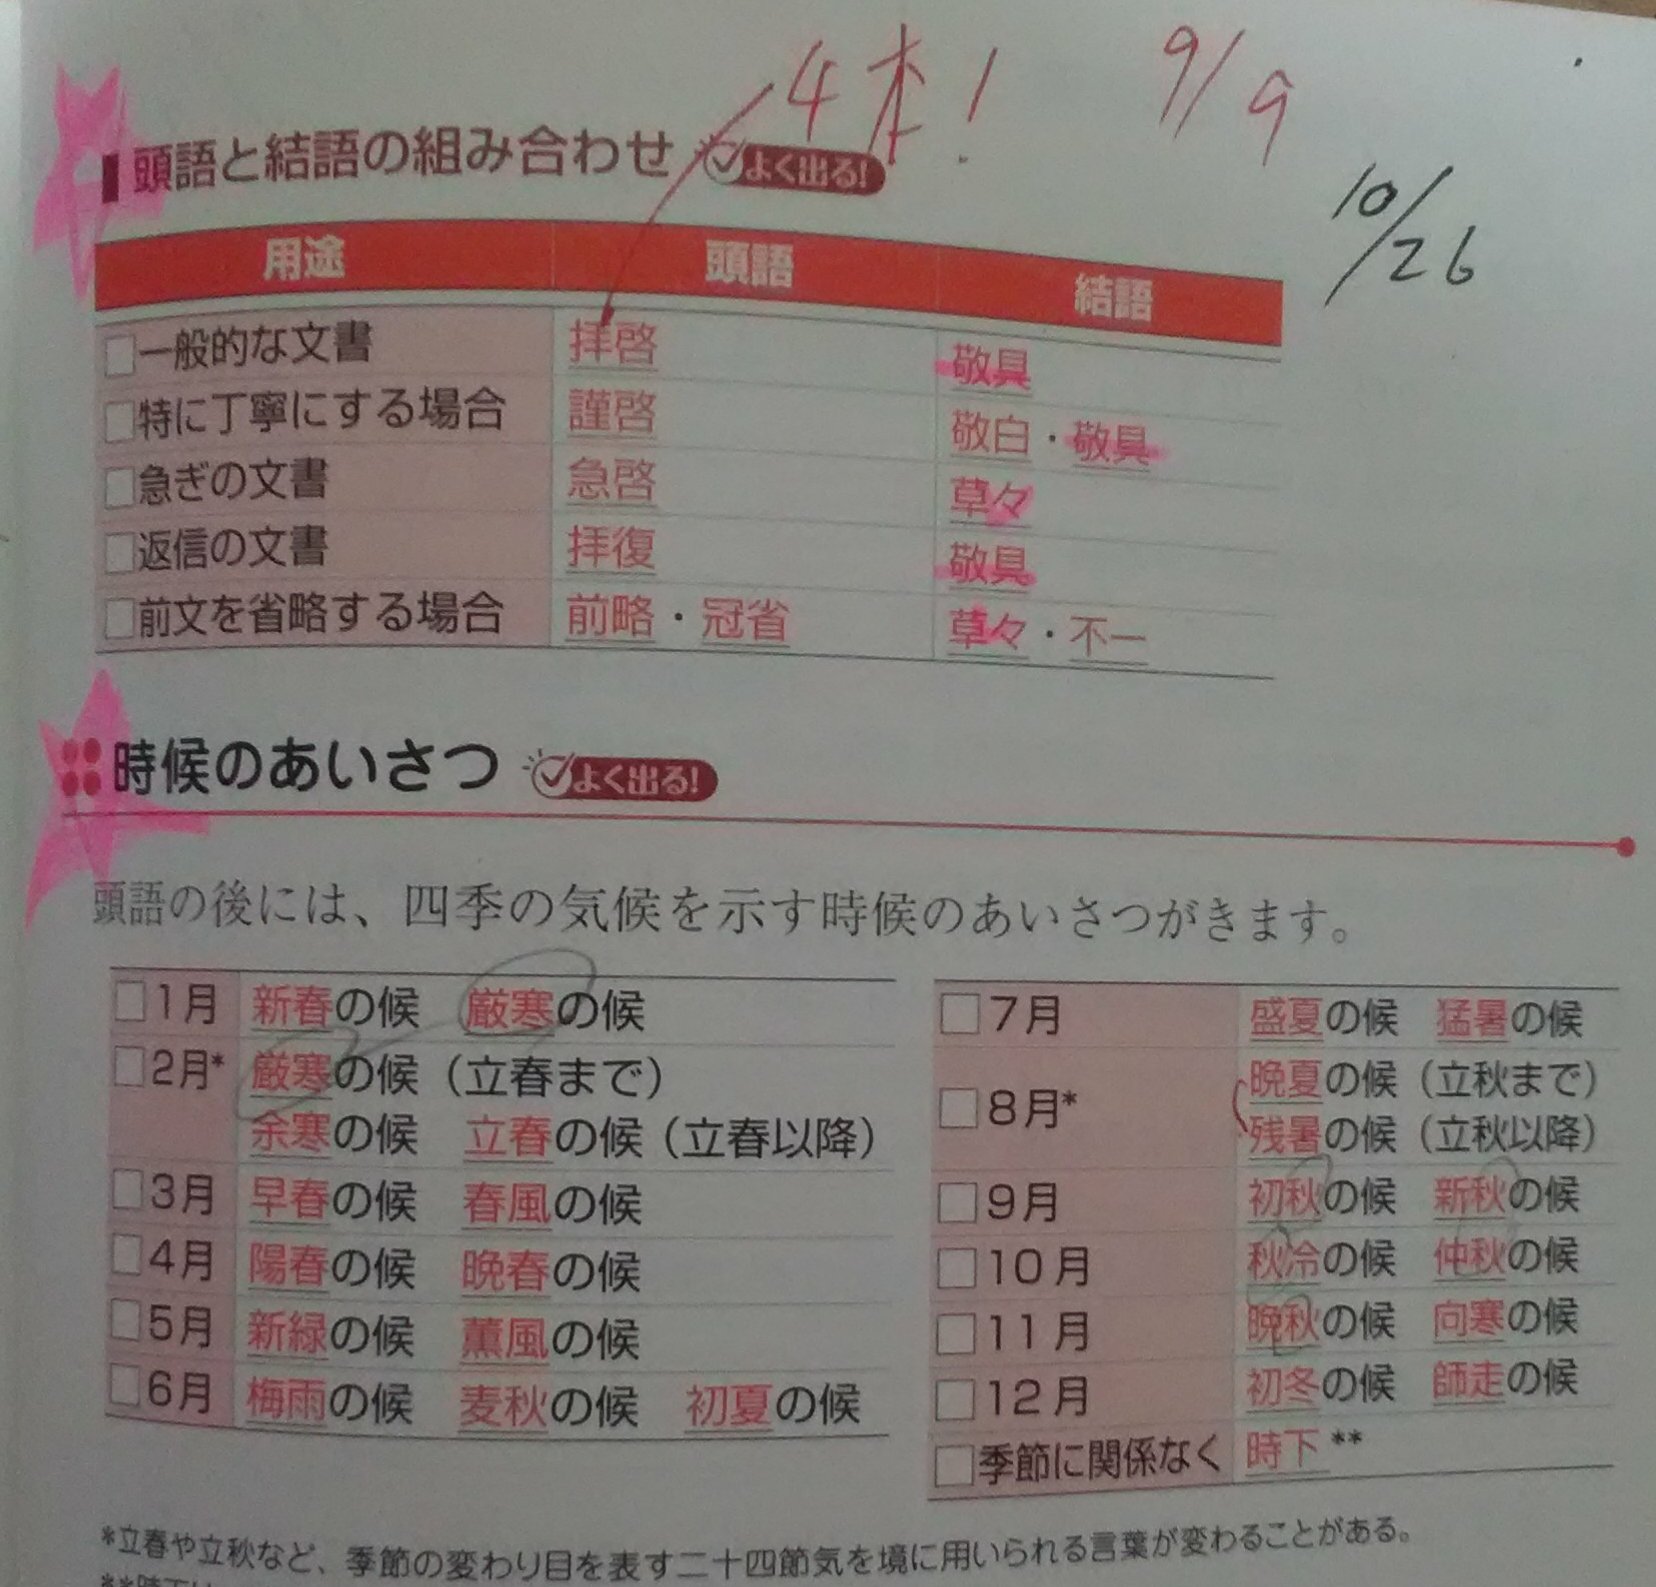 4本!
9/9
10/26
頭語と結語の組み合わせ よく出る!
用途 頭語 結語
□一般的な文書 拝啓 敬具
□特に丁寧にする場合 謹啓 敬白・敬具
□急ぎの文書 急啓 草々
□返信の文書 拝復 敬具
□前文を省略する場合 前略・冠省 草々・不一
時候のあいさつ よく出る!
頭語の後には、四季の気候を示す時候のあいさつがきます。
□1月 新春の候 厳寒の候
□2月* 厳寒の候(立春まで)
余寒の候 立春の候(立春以降)
□3月 早春の候 春風の候
□4月 陽春の候 晩春の候
□5月 新緑の候 薫風の候
□6月 梅雨の候 麦秋の候 初夏の候
□7月 盛夏の候 猛暑の候
□8月* 晩夏の候(立秋まで)
残暑の候(立秋以降)
□9月 初秋の候 新秋の候
□10月 秋冷の候 仲秋の候
□11月 晩秋の候 向寒の候
□12月 初冬の候 師走の候
□季節に関係なく 時下**
*立春や立秋など、季節の変わり目を表す二十四節気を境に用いられる言葉が変わることがある。